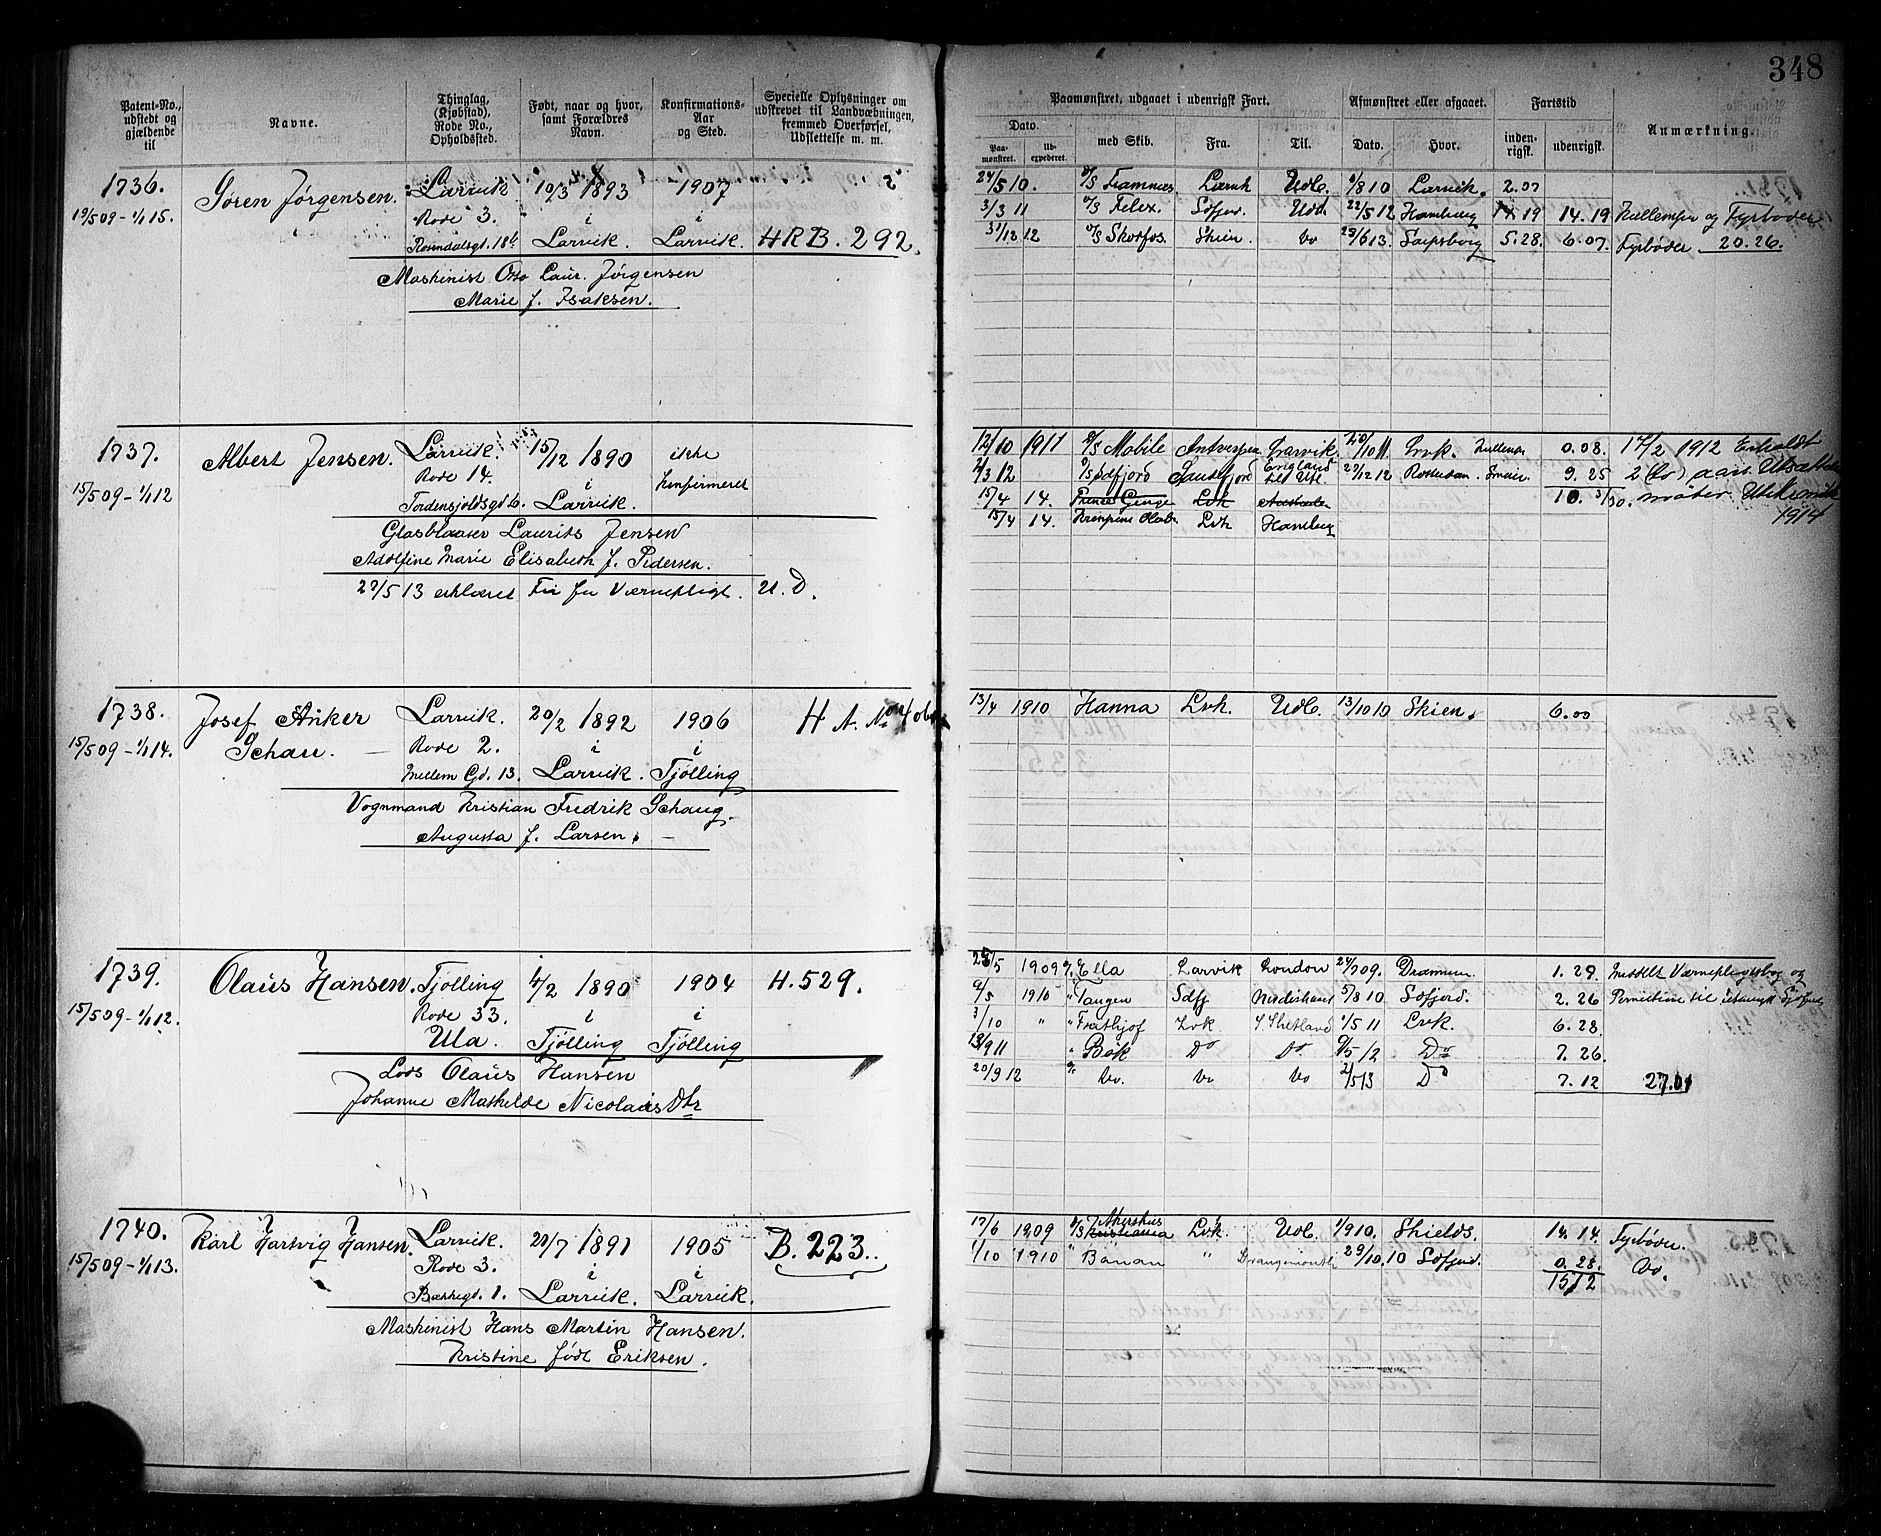 348
Patent-No., udstedt og gjældende til
Navne.
Thinglag, (Kjøbstad), Rode No., Opholdssted.
Født, naar og hvor, samt Forældres Navn.
Konfirmations-Aar og Sted.
Specielle Oplysninger om udskrevet til Landværbningen, fremmed Overførsel, Udslettelse m. m.
Paamønstret, udgaaet i udenrigsk Fart.
Afmønstret eller afgaaet.
Fartstid
Anmærkning.
Dato.
Paa-mønstret.
Ud-expederet.
med Skib.
Fra.
Til.
Dato.
Hvor.
inden-rigsk.
udenrigsk.
1736. Søren Jørgensen. Larvik 10/3 1893 1907
19/5 09 - 1/1 15. Rode 3. i i
Larvik. Larvik. HRB. 292.
Maskinist Otto Laur. Jørgensen
Marie f. Isaksen.
24/5 10. D/S Framnæs Larvik Udl. 8 10 Larvik. 2.07
3/3 11 D/S Felex. Sdfjor. Udl. 22/5 12 Hamburg 14.19 og Fyrbøder
31/12 12 D/S Skotfos. Skien. Do 23/6 13. Sarpsborg 5.28. 6.07. Fyrbøder 20.26.
1737. Albert Jensen. Larvik. 15/12 1890 ikke
15/5 09 - 1/1 12 Rode 14. i konfirmeret
Tordensjoldsgd 6. Larvik.
Glasblaaser Laurits Jensen
Adolfine Marie Elisabeth f. Pedersen.
27/5 13 erklæret Fri for Værnepligt. U.D.
12/10 1911 D/S Mobile Antverpen Larvik 20/10 11 Lrvk. 0.08. 17/2 1912 Erholdt
3 12 D/S Sødfjord Sandefjord England 27/12 12 Rotterdam. 9.25 2 (to) aars Udsættelse
15/4 14. Prinses George Lvk 10. 3/30. møter
15/4 14. Kronprins Olav Lvk Hamburg 1914
1738. Josef Anker Larvik. 20/2 1892 1906 H A. No
15/5 09 - 1/1 14. Schau. — Rode 2. i i
Mellem Gd. 13. Larvik. Tjølling
Vognmand Kristian Fredrik Schaug.
Augusta f. Larsen. —
13/4 1910 Hanna Lvk. Udl. 13/10 10 Skien. 6.00
1739. Olaüs Hansen. Tjølling 4/2 1890 1904 H. 529.
15/5 09 - 1/1 12. Rode 33. i i
Ula. Tjølling Tjølling
Lods Olaüs Hansen
Johanne Mathilde Nicolaüs Dtr
25/5 1909 Ella Larvik London 09. Drammen 1.29. Meddelt Værnepligtsbog og
/5 1910 " Tangen Sdfj 5/8 10 Sdfjord. 2.26 Permission til udenrigsk Sjøfart
3/10 " " Frithjof Lvk. S. Shetland 1/5 11 Lvk. 6.28.
13/9 11 " Bøk Do Do. /5 12 Do 7.26.
20/9 12 Do. Do Do 2/5 13 Do 7.12 27.01
1740. Karl Hartvig Hansen. Larvik. 20/7 1891 1905 B. 223.
15/5 09 - 1/1 13. Rode 3. i i
Bækkegd. 1. Larvik. Larvik.
Maskinist Hans Martin Hansen.
Kristine født Eriksen.
17/6 1909 D/S Akershus Kristiania Lvk. Udl. 1/9 10. Shields. 14.14. Fyrbøder.
1/10 1910 " Banan " Drangemouth 29/10. 10 Sdfjord. 0.28. Do.
15/12